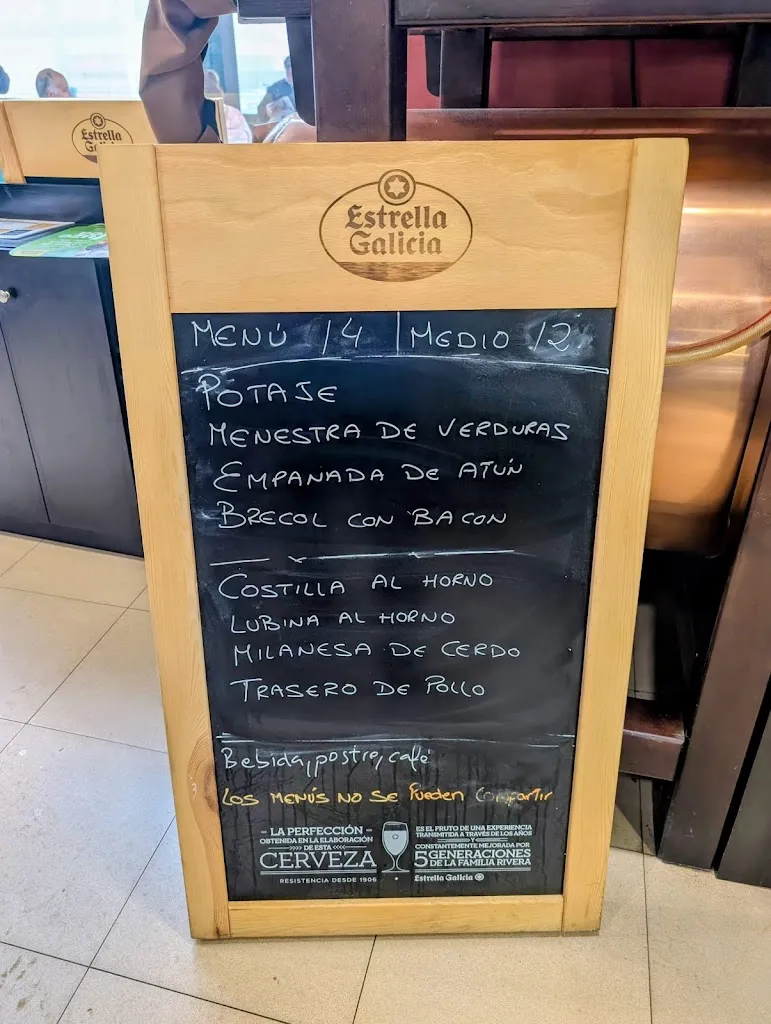 Estrella
Galicia
Estrella
Galicia
MENÚ 14 | MEDIO 12
POTAJE
MENESTRA DE VERDURAS
EMPANADA DE ATÚN
BRECOL CON BACON
COSTILLA AL HORNO
LUBINA AL HORNO
MILANESA DE CERDO
TRASERO DE POLLO
Bebida, postre, café
LOS MENÚS NO SE PUEDEN COMPARTIR.
LA PERFECCIÓN
OBTENIDA EN LA ELABORACIÓN
DE ESTA
CERVEZA
RESISTENCIA DESDE 1906
ES EL FRUTO DE UNA EXPERIENCIA
TRANSMITIDA A TRAVÉS DE LOS AÑOS
Y
CONSTANTEMENTE MEJORADA POR
5 GENERACIONES
DE LA FAMILIA RIVERA
Estrella Galicia